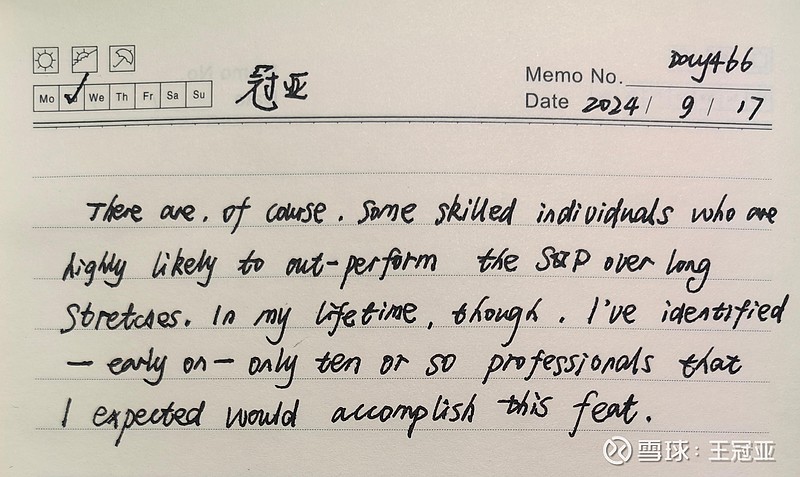 冠亚
Memo No. Day466
Mo Tu We Th Fr Sa Su
Date 2024 / 9 / 17
There are, of course, some skilled individuals who are
highly likely to out-perform the S&P over long
stretches. In my lifetime, though, I've identified
— early on — only ten or so professionals that
I expected would accomplish this feat.
雪球:王冠亚